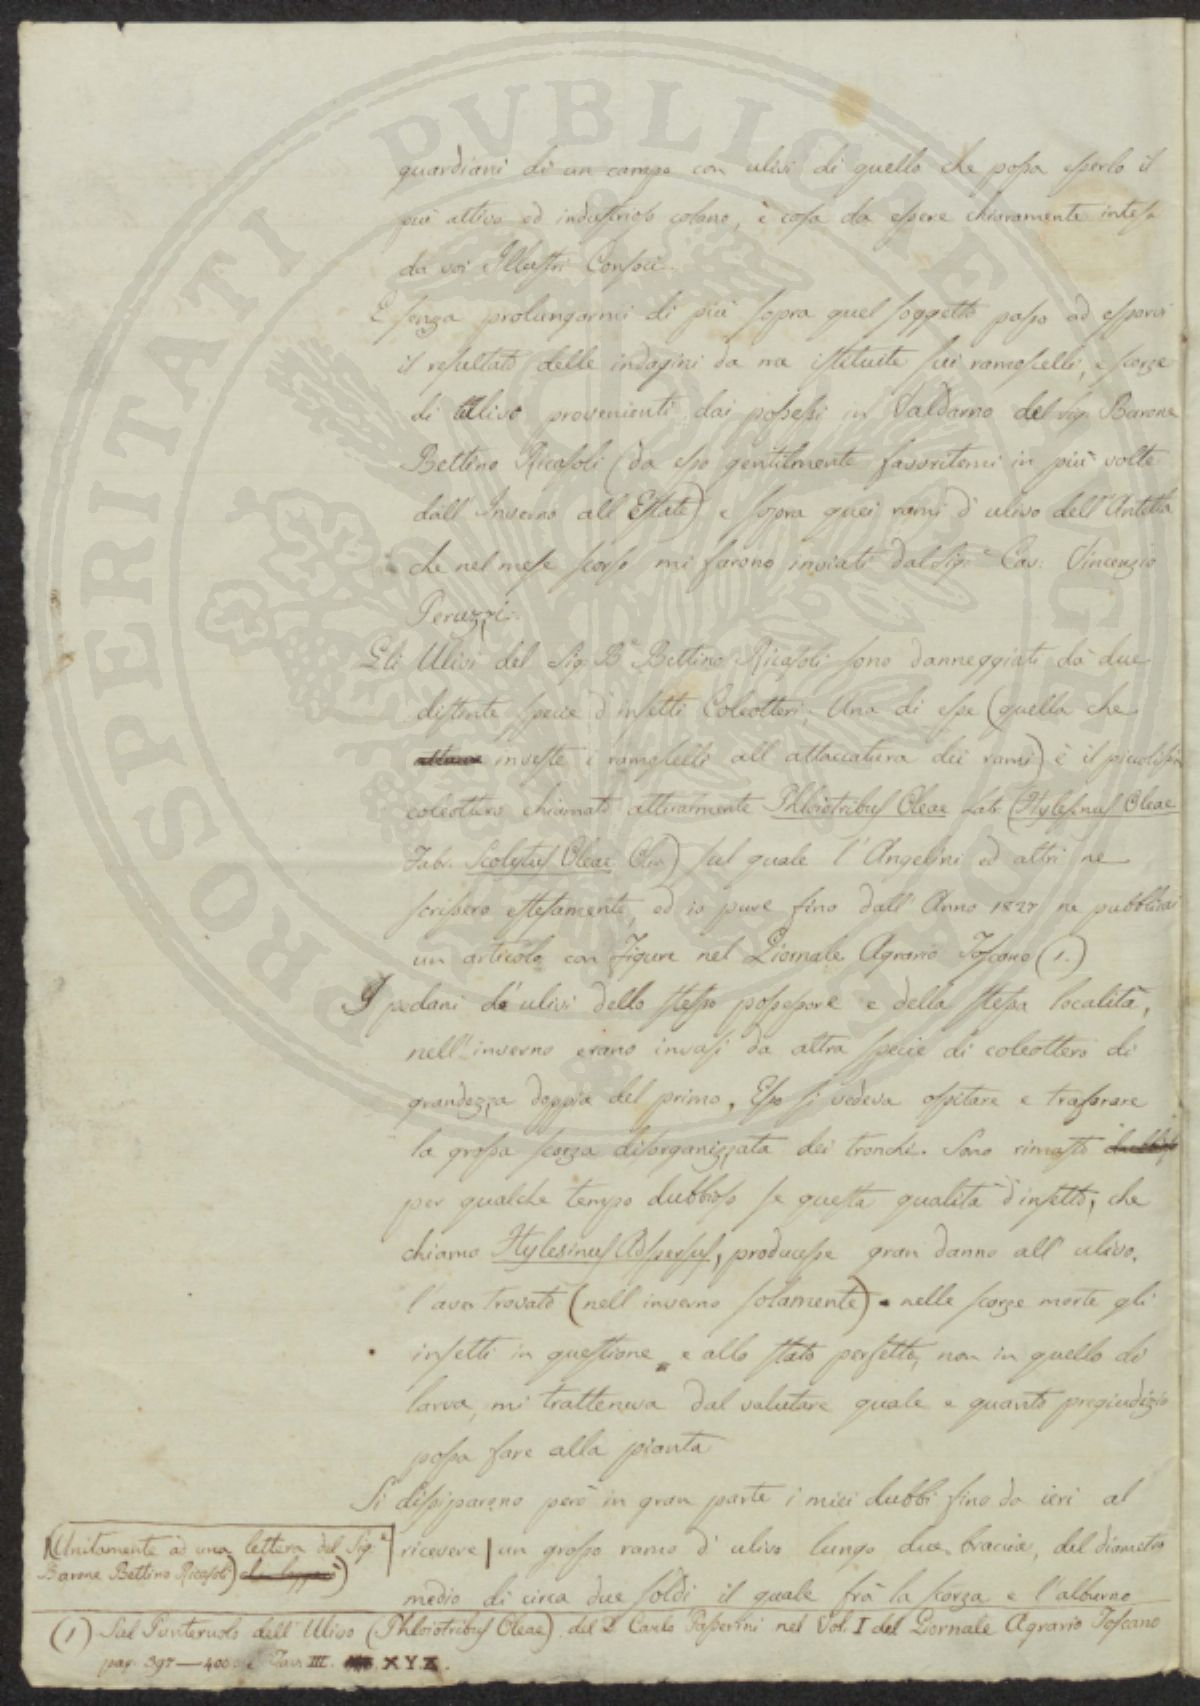 guardiani di un campo con ulivi di quello che possa esserlo il
più attivo ed industrioso colono, è cosa da essere chiaramente intesa
da voi Illustri Consoci.
E senza prolungarmi di più sopra quel soggetto passo ad esporvi
il resultato delle indagini da me istituite sui ramoscelli, e scorze
di Ulivo provenienti dai possessi in Valdarno del Sig. Barone
Bettino Ricasoli (da esso gentilmente favoritemi in più volte
dall'Inverno all'Estate) e sopra quei rami d'ulivo dell'Antella
che nel mese scorso mi furono inviati dal Sig.r Cav: Vincenzio
Peruzzi.
Gli Ulivi del Sig. B.e Bettino Ricasoli sono danneggiati da due
distinte specie d'insetti Coleotteri. Una di esse (quella che
investe i ramoscelli all'attaccatura dei rami) è il piccolissimo
coleottero chiamato attualmente Phloiotribus Oleae Latr. (Hylesinus Oleae
Fabr. Scolytus Oleae Oliv.) sul quale l'Angelini ed altri ne
scrissero estesamente, ed io pure fino dall'Anno 1827 ne pubblicai
un articolo con Figure nel Giornale Agrario Toscano (1.)
I pedani di ulivi dello stesso possessore e della stessa località,
nell'inverno erano invasi da altra specie di coleottero di
grandezza doppia del primo, Esso si vedeva ospitare e traforare
la grossa scorza disorganizzata dei tronchi. Sono rimasto
per qualche tempo dubbioso se questa qualità d'insetto, che
chiamo Hylesinus Adspersus, producesse gran danno all'ulivo.
l'aver trovato (nell'inverno solamente) nelle scorze morte gli
insetti in questione e allo stato perfetto, non in quello di
larva, mi tratteneva dal valutare quale e quanto pregiudizio
possa fare alla pianta
Si dissiparono però in gran parte i miei dubbi fino da ieri al
ricevere | un grosso ramo d'ulivo lungo due braccia, del diametro
medio di circa due soldi il quale frà la scorza e l'alburno
(Unitamente ad una lettera del Sig.r
Barone Bettino Ricasoli)
(1) Sul Punteruolo dell'Ulivo (Phloiotribus Oleae) del D. Carlo Passerini nel Vol. I del Giornale Agrario Toscano
pag. 397—400 e Tav. III. X.Y.Z.